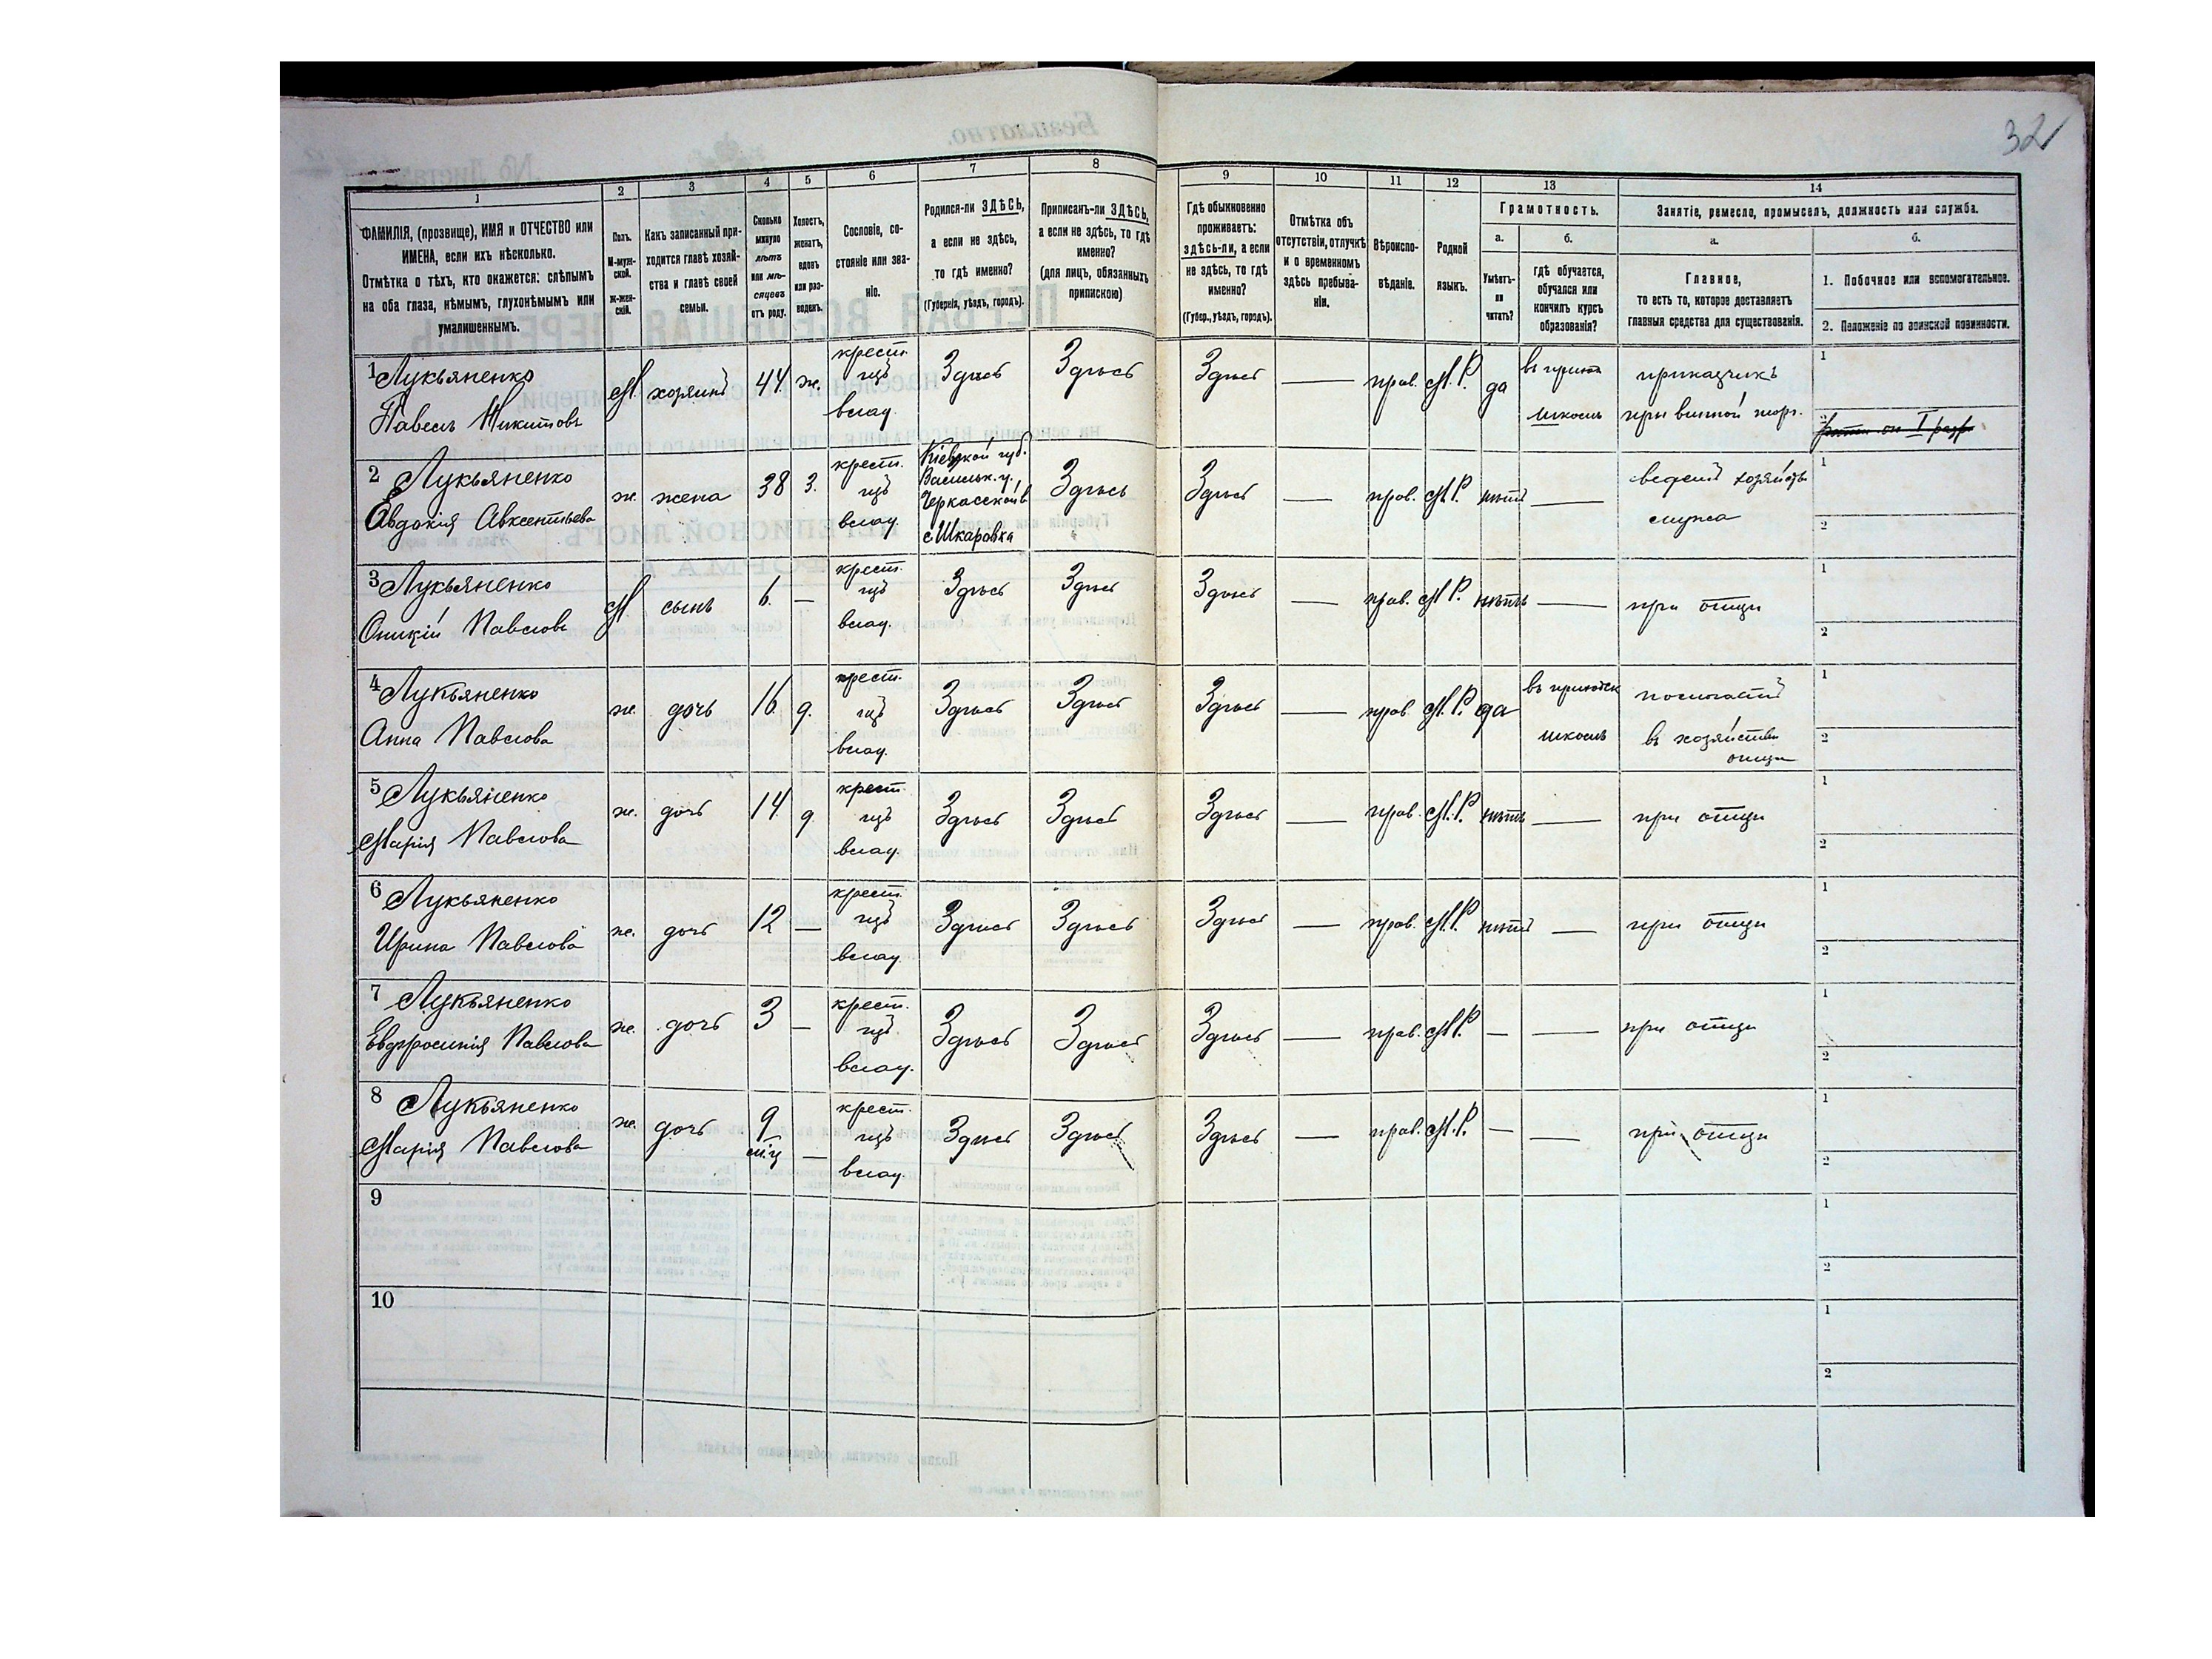 32
1 2 3 4 5 6 7 8 9 10 11 12 13 14
ФАМИЛІЯ, (прозвище), ИМЯ и ОТЧЕСТВО или ИМЕНА, если ихъ нѣсколько.
Отмѣтка о тѣхъ, кто окажется: слѣпымъ на оба глаза, нѣмымъ, глухонѣмымъ или умалишеннымъ.
Полъ. М-муж-ской. Ж-жен-скій.
Какъ записанный при-ходится главѣ хозяй-ства и главѣ своей семьи.
Сколько минуло лѣтъ или мѣ-сяцевъ отъ роду.
Холостъ, женатъ, вдовъ или раз-веденъ.
Сословіе, со-стояніе или зва-ніе.
Родился-ли ЗДѢСЬ, а если не здѣсь, то гдѣ именно? (Губернія, уѣздъ, городъ).
Приписанъ-ли ЗДѢСЬ, а если не здѣсь, то гдѣ именно? (для лицъ, обязанныхъ припискою)
Гдѣ обыкновенно проживаетъ: здѣсь-ли, а если не здѣсь, то гдѣ именно? (Губер., уѣздъ, городъ).
Отмѣтка объ отсутствіи, отлучкѣ и о временномъ здѣсь пребыва-ніи.
Вѣроиспо-вѣданіе.
Родной языкъ.
Грамотность.
а. Умѣетъ-ли читать?
б. гдѣ обучается, обучался или кончилъ курсъ образованія?
Занятіе, ремесло, промыселъ, должность или служба.
а. Главное, то есть то, которое доставляетъ главныя средства для существованія.
б. 1. Побочное или вспомогательное.
2. Положеніе по воинской повинности.
1 Лукьяненко Павелъ Никитовъ М хозяинъ 44 ж. крест. изъ влад. Здѣсь Здѣсь Здѣсь — прав. М.Р. да школѣ приказчикъ при винной торг. 1 2
2 Лукьяненко Евдокія Авксентьева ж. жена 38 З. крест. изъ влад. Кіевской губ. Васильк. у. Черкасской в с Шкаровка Здѣсь Здѣсь — прав. М.Р. нѣтъ — 1 2
3 Лукьяненко Павловъ М сынъ 6 — крест. изъ влад. Здѣсь Здѣсь Здѣсь — прав. М.Р. нѣтъ — при отцѣ 1 2
4 Лукьяненко Анна Павлова ж. дочь 16 д. крест. изъ влад. Здѣсь Здѣсь Здѣсь — прав М.Р. да школѣ въ хозяйствѣ отца 1 2
5 Лукьяненко Марія Павлова ж. дочь 14 д. крест изъ влад. Здѣсь Здѣсь Здѣсь — прав. М.Р. нѣтъ — при отцѣ 1 2
6 Лукьяненко Ирина Павлова ж. дочь 12 — крест. изъ влад. Здѣсь Здѣсь Здѣсь — прав. М.Р. нѣтъ — при отцѣ 1 2
7 Лукьяненко Евфросинія Павлова ж. дочь 3 — крест. изъ влад. Здѣсь Здѣсь Здѣсь — прав. М.Р — — при отцѣ 1 2
8 Лукьяненко Марія Павлова ж. дочь 9 м.ц — крест. изъ влад. Здѣсь Здѣсь Здѣсь — прав. М.Р. — — при отцѣ 1 2
9 1 2
10 1 2